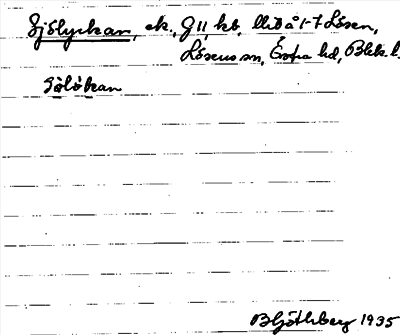 Sjölyckan, ek., G11 kb. Utöå 1-7 Lösen,
Lösens sn, Östra hd, Blek. l.
Sjölökan
B Ljöthberg 1935